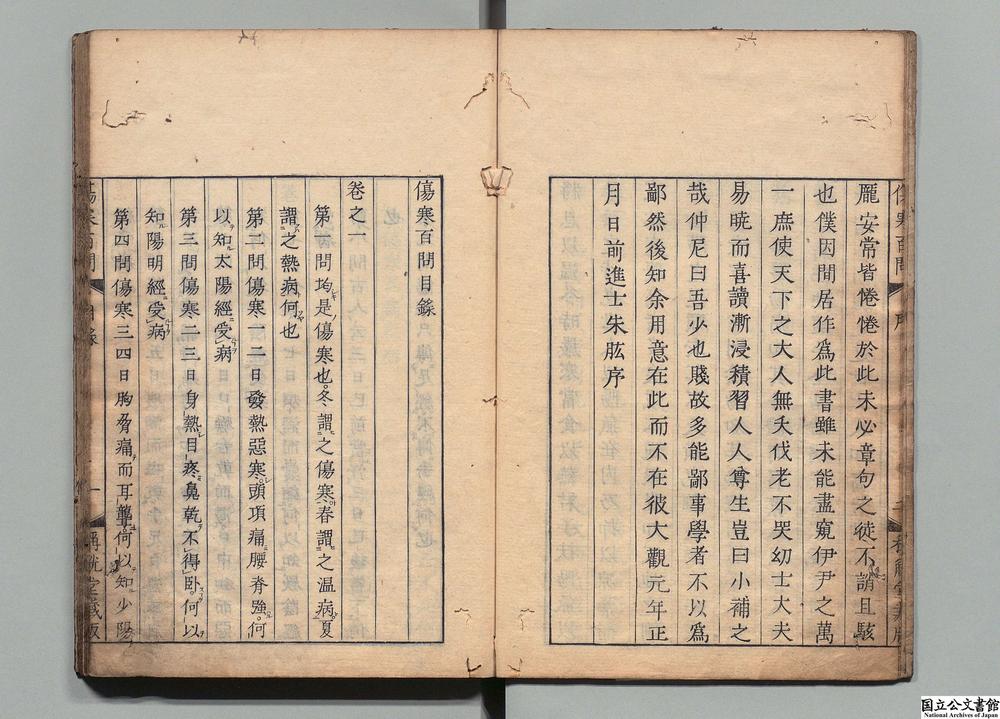 龐安常皆惓惓於此未必章句之徒不誚且駭
也僕因閒居作爲此書雖未能盡窺伊尹之萬
一庶使天下之大人無夭伐老不哭幼士大夫
易曉而喜讀漸浸積習人人尊生豈曰小補之
哉仲尼曰吾少也賤故多能鄙事學者不以爲
鄙然後知余用意在此而不在彼大觀元年正
月日前進士朱肱序
傷寒百問目錄
卷之一
第一問均是傷寒也冬謂之傷寒春謂之温病夏
謂之熱病何也
第二問傷寒一二日發熱惡寒頭項痛腰脊強何
以知太陽經受病
第三問傷寒二三日身熱目疼鼻乾不得卧何以
知陽明經受病
第四問傷寒三四日胸脅痛而耳聾何以知少陽
傷寒百問 目錄 一
国立公文書館
National Archives of Japan